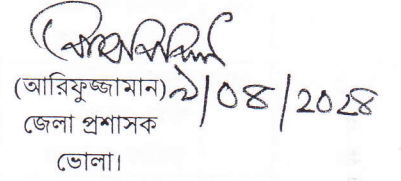 (আরিফুজ্জামান) ৯/০৪/২০২৪
জেলা প্রশাসক
ভোলা।